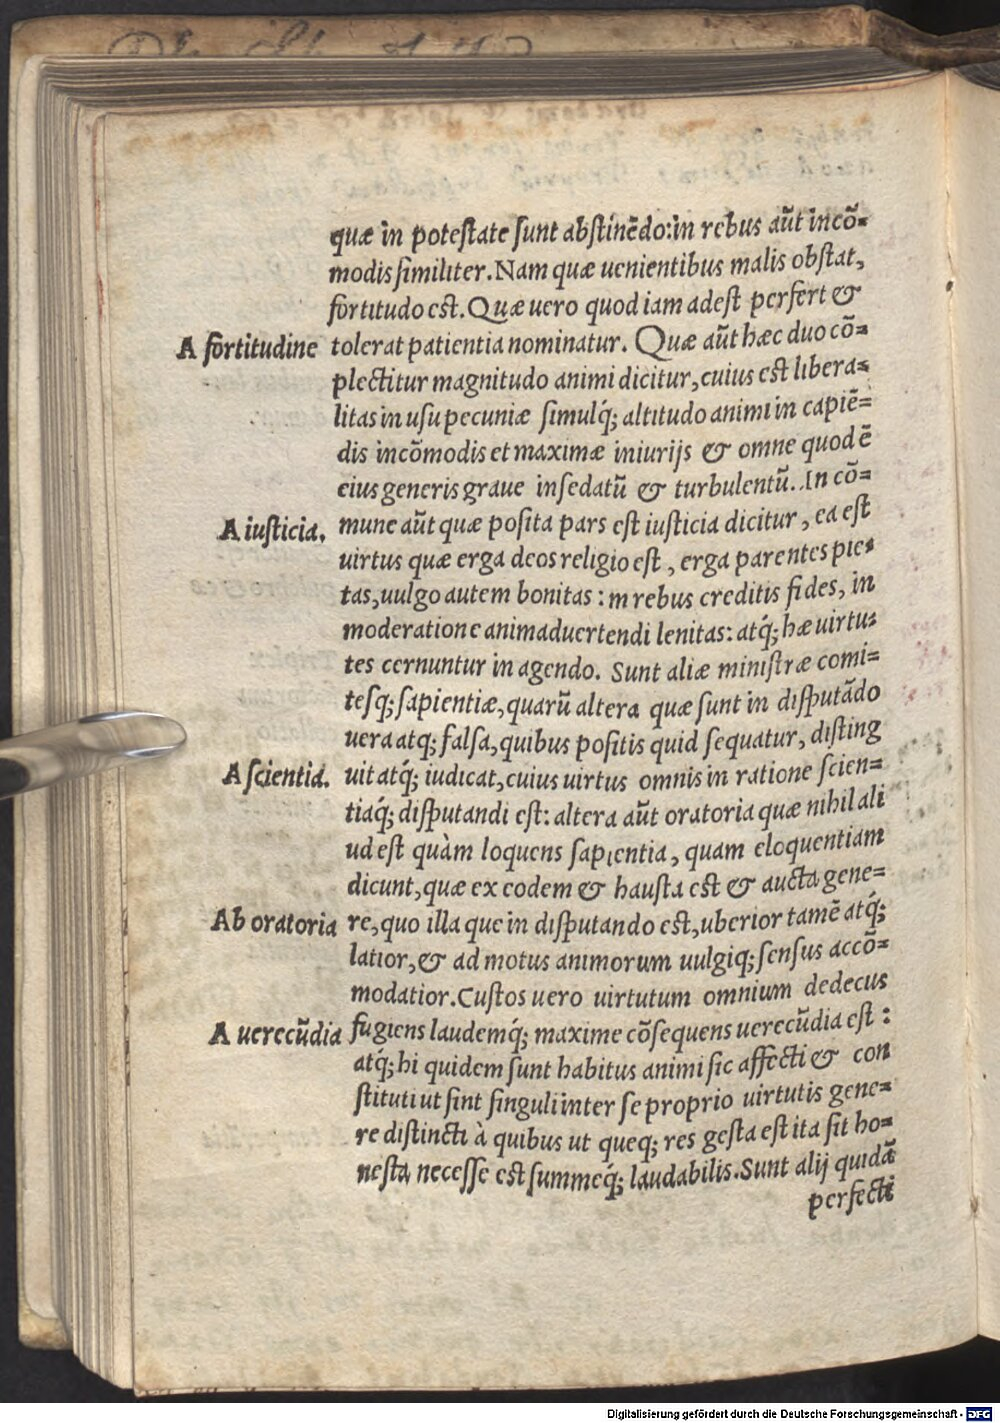 quæ in potestate sunt abstinẽdo: in rebus aũt incõ=
modis similiter. Nam quæ uenientibus malis obstat,
fortitudo est. Quæ uero quod iam adest perfert &
A fortitudine
tolerat patientia nominatur. Quæ aũt hæc duo cõ=
plectitur magnitudo animi dicitur, cuius est libera=
litas in usu pecuniæ simulq́; altitudo animi in capiẽ=
dis incõmodis et maximæ iniurijs & omne quod ẽ
eius generis graue insedatũ & turbulentũ. In cõ=
A iusticia.
mune aũt quæ posita pars est iusticia dicitur, ea est
uirtus quæ erga deos religio est, erga parentes pie=
tas, uulgo autem bonitas: in rebus creditis fides, in
moderatione animaduertendi lenitas: atq́; hæ uirtu=
tes cernuntur in agendo. Sunt aliæ ministræ comi=
tesq; sapientiæ, quarũ altera quæ sunt in disputãdo
uera atq; falsa, quibus positis quid sequatur, disting
A scientia.
uit atq́; iudicat, cuius uirtus omnis in ratione scien=
tiaq́; disputandi est: altera aũt oratoria quæ nihil ali
ud est quàm loquens sapientia, quam eloquentiam
dicunt, quæ ex eodem & hausta est & aucta gene=
Ab oratoria
re, quo illa que in disputando est, uberior tamẽ atq́;
latior, & ad motus animorum uulgiq; sensus accõ=
modatior. Custos uero uirtutum omnium dedecus
A uerecũdia
fugiens laudemq́; maxime cõsequens uerecũdia est:
atq́; hi quidem sunt habitus animi sic affecti & con
stituti ut sint singuli inter se proprio uirtutis gene=
re distincti à quibus ut queq; res gesta est ita sit ho=
nesta necesse est summeq́; laudabilis. Sunt alij quidã
perfecti
Digitalisierung gefördert durch die Deutsche Forschungsgemeinschaft - DFG